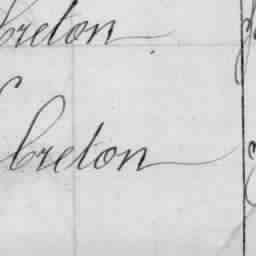 Creton
Creton